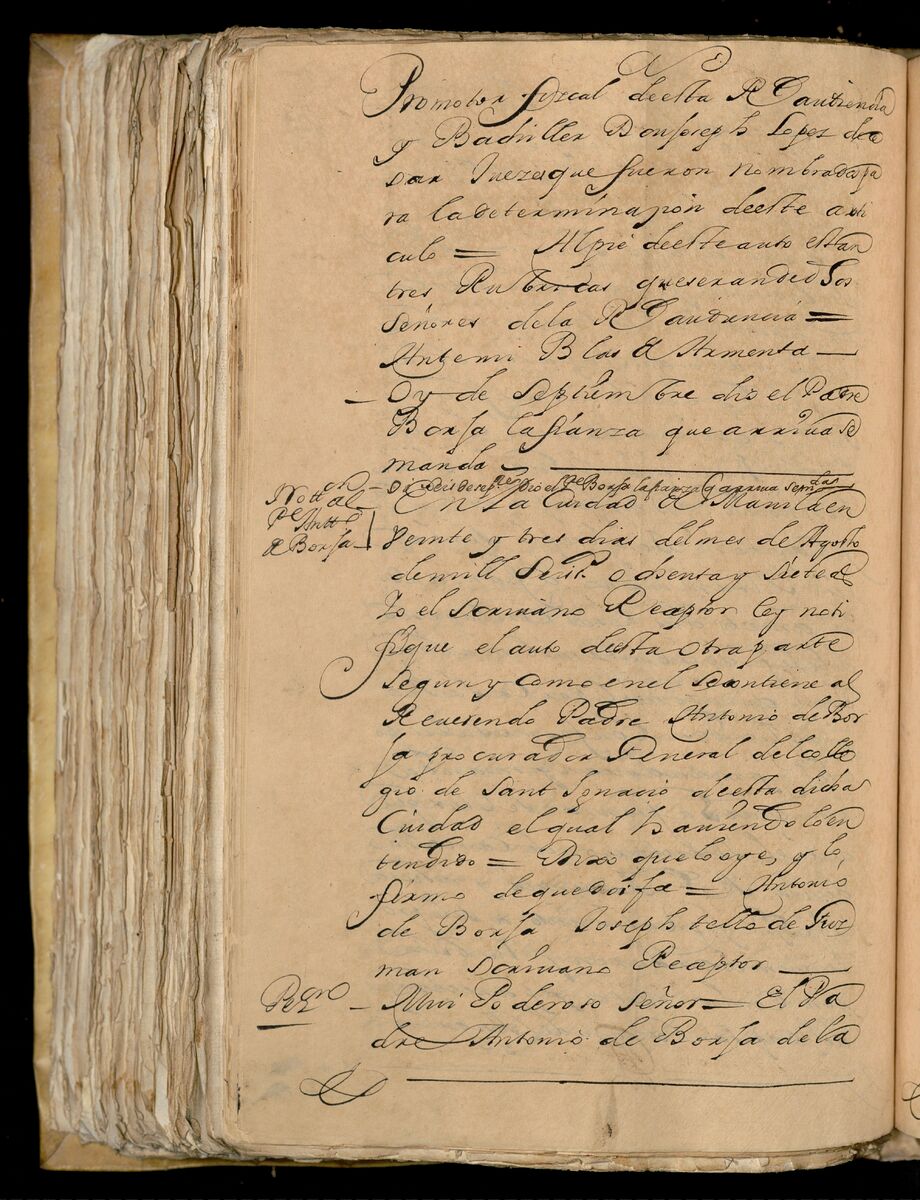 Promotor fiscal deesta Rl audiencia
y Bachiller Don Joseph Lopez de
Juezes que fueron nombrados pa
ra la determinazion deeste arti
culo = Al pie deeste auto estan
tres Rubricas que seran de los
Señores dela Rl audiencia =
Antemi Blas de Armenta —
de septiembre dio el Padre
Borja la fianza que arriva se
manda
de sepre. dio el Pe Borja la fianza q arriva se
Notton
al
Pe Antto
de Borja
En La Ciudad de Manila en
Veinte y tres dias del mes de Agosto
demill Seisos. ochenta y siete as
Yo el Scrivano Receptor ley noti
fique el auto deesta otra parte
segun y como en el se contiene al
Reverendo Padre Antonio de Bor
ja procurador General del colle
gio de Sant Ignacio deesta dicha
Ciudad el qual haviendolo en
tendido = Dixo que lo oye, y lo
firmo de que doi fee = Antonio
de Borja Joseph tello de Guz
man Scrivano Receptor
Muy Poderoso Señor = El Pa
dre Antonio de Borja de la